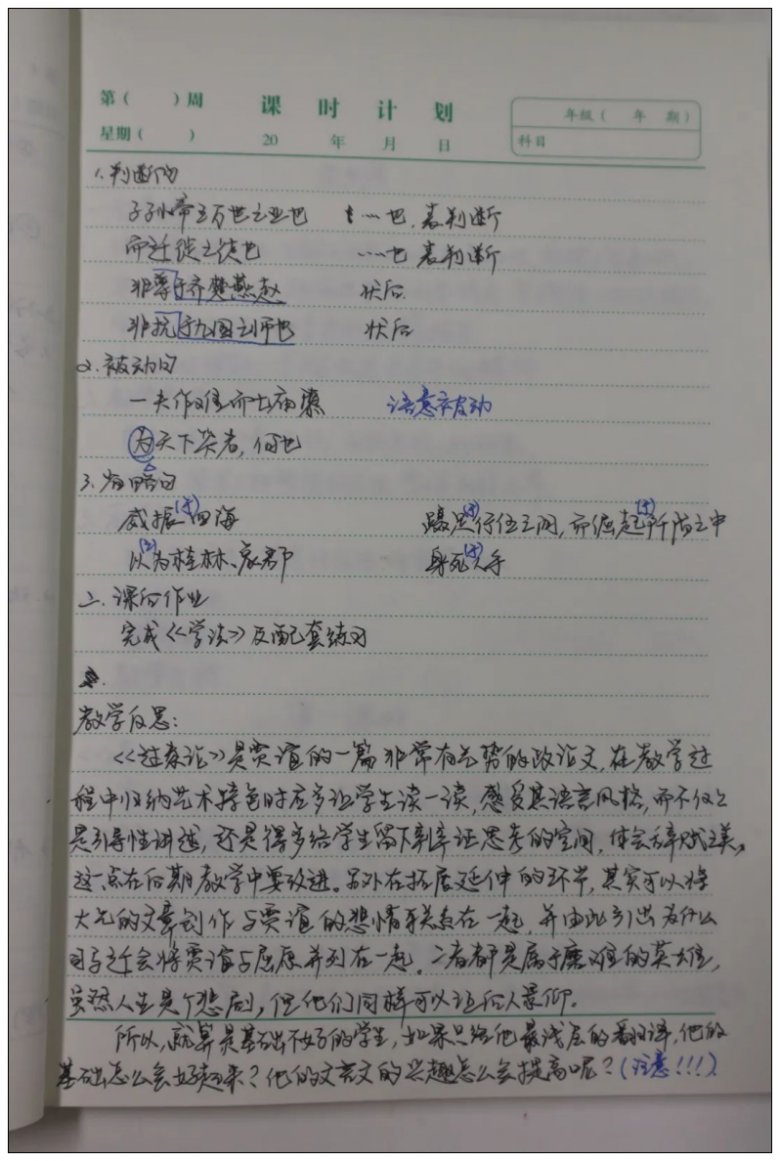 第（ ）周 课 时 计 划 年级（ 年 期）
星期（ ） 20 年 月 日 科目
1.判断句
子孙帝王万世之业也 ……也，表判断
而迁徙之徒也 ……也 表判断
非尊于齐楚燕赵 状后
非抗于九国之师也 状后
2.被动句
一夫作难而七庙隳 语意被动
为天下笑者，何也
3.省略句
威振(于)四海 蹑足(于)行伍之间，而倔起(于)阡陌之中
以(之)为桂林、象郡 身死(于)人手
二.课后作业
完成《学法》及配套练习
教学反思：
《过秦论》是贾谊的一篇非常有气势的政论文，在教学过
程中归纳艺术特色时应多让学生读一读，感受其语言风格，而不仅仅
是引导性讲述，还是得多给学生留下辩证思考的空间，体会辞赋之美，
这一点在后期教学中要改进。另外在拓展延伸的环节，其实可以将
大气的文章创作与贾谊的悲情联系在一起，并由此引出为什么
司马迁会将贾谊与屈原并列在一起，二者都是属于磨难的英雄，
虽然人生是个悲剧，但他们同样可以让后人景仰。
所以，就算是基础不好的学生，如果只给他最浅层的翻译，他的
基础怎么会好起来？他的文言文的兴趣怎么会提高呢？（注意！！！）